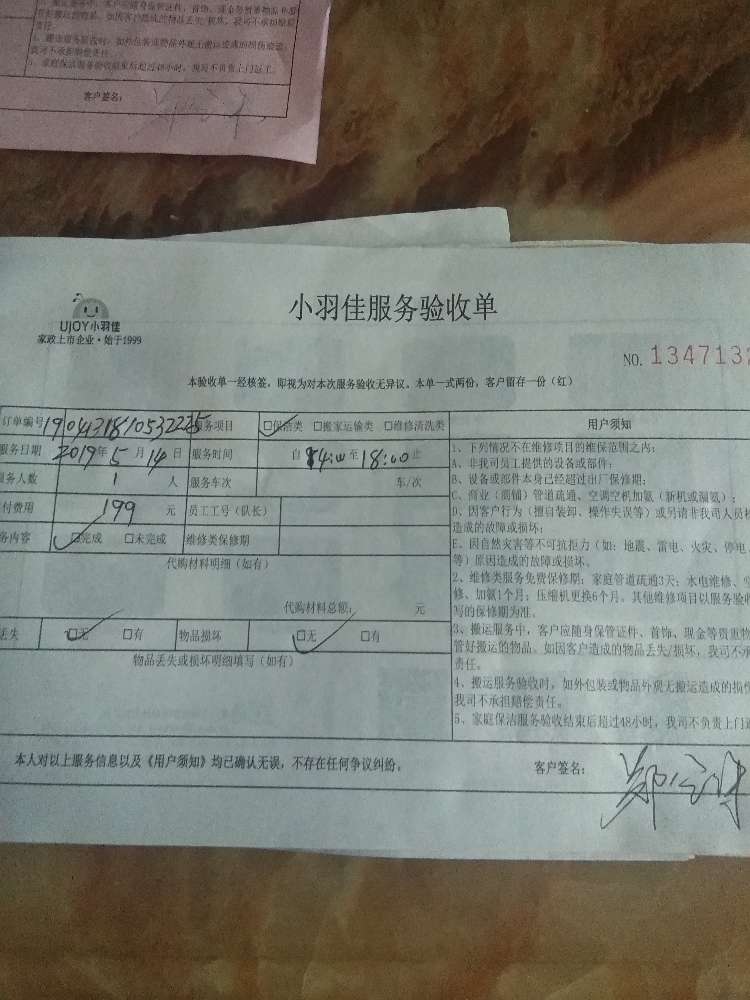 如因客户造成的物品丢失/损坏，我司不承担赔偿
责任。
4、搬运服务验收时，如外包装或物品外观无搬运造成的损伤痕迹，
我司不承担赔偿责任。
5、家庭保洁服务验收结束后超过48小时，我司不负责上门返工。
客户签名：
UJOY小羽佳
家政上市企业·始于1999
小羽佳服务验收单
NO. 1347132
本验收单一经核签，即视为对本次服务验收无异议。本单一式两份，客户留存一份（红）
订单编号 服务项目 保洁类 搬家运输类 维修清洗类 用户须知
服务日期 2019年 5月 14日 服务时间 自 14:00 至 18:00 止
服务人数 1 人 服务车次 车/次
付费用 199 元 员工工号（队长）
务内容 完成 未完成 维修类保修期
代购材料明细（如有）
代购材料总额： 元
丢失 无 有 物品损坏 无 有
物品丢失或损坏明细填写（如有）
1、下列情况不在维修项目的维保范围之内：
A、非我司员工提供的设备或部件；
B、设备或部件本身已经超过出厂保修期；
C、商业（商铺）管道疏通、空调空机加氟（新机或漏氟）；
D、因客户行为（擅自装卸、操作失误等）或另请非我司人员
造成的故障或损坏；
E、因自然灾害等不可抗拒力（如：地震、雷电、火灾、停电
等）原因造成的故障或损坏。
2、维修类服务免费保修期：家庭管道疏通3天；水电维修、
修、加氟1个月；压缩机更换6个月。其他维修项目以服务验收
写的保修期为准。
3、搬运服务中，客户应随身保管证件、首饰、现金等贵重物
管好搬运的物品。如因客户造成的物品丢失/损坏，我司不承
责任。
4、搬运服务验收时，如外包装或物品外观无搬运造成的损
我司不承担赔偿责任。
5、家庭保洁服务验收结束后超过48小时，我司不负责上门返
本人对以上服务信息以及《用户须知》均已确认无误，不存在任何争议纠纷。 客户签名：